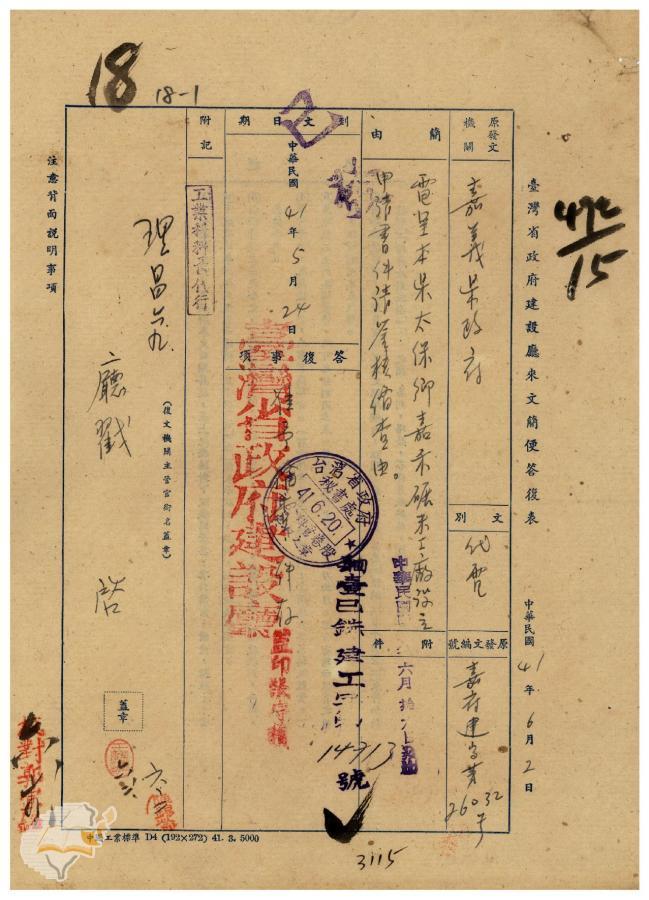 18
18-1
臺灣省政府建設廳來文簡便答復表
中華民國41年6月2日
原發文機關
嘉義縣政府
文別
代電
原發文編號
嘉府建
26032
簡由
電呈本縣太保鄉嘉禾碾米工廠設立
申請書件請鑒核備查由。
附件
中華民國
六月
到文日期
中華民國41年5月24日
答復事項
准予備
件存
臺灣省政府建設廳
台灣省政府
秘書處
41.6.20
建工
14713號
3115
附記
工業科科長代行
廳戳
啓
(復文機關主管官銜名蓋章)
蓋章
注意背面說明事項
校對
工業標準 D4 (192×272) 41. 3. 5000